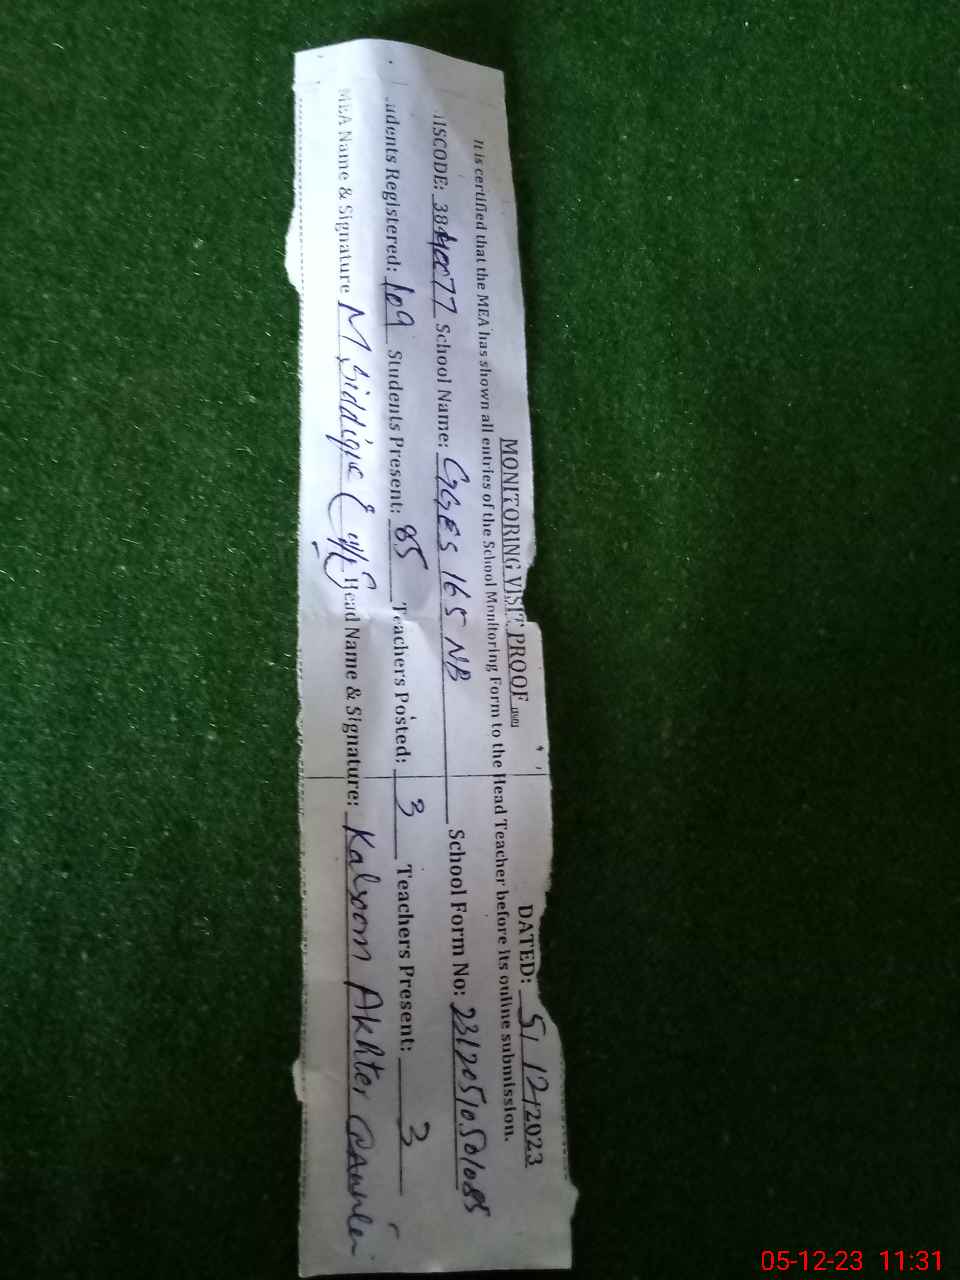 MONITORING VISIT PROOF DATED: 5/ 12/2023
It is certified that the MEA has shown all entries of the School Monitoring Form to the Head Teacher before its online submission.
ISCODE: 38440077 School Name: GGES 165 NB School Form No: 23120510501085
udents Registered: 109 Students Present: 85 Teachers Posted: 3 Teachers Present: 3
MEA Name & Signature M. Siddique Head Name & Signature: Kalsoom Akhter
05-12-23 11:31